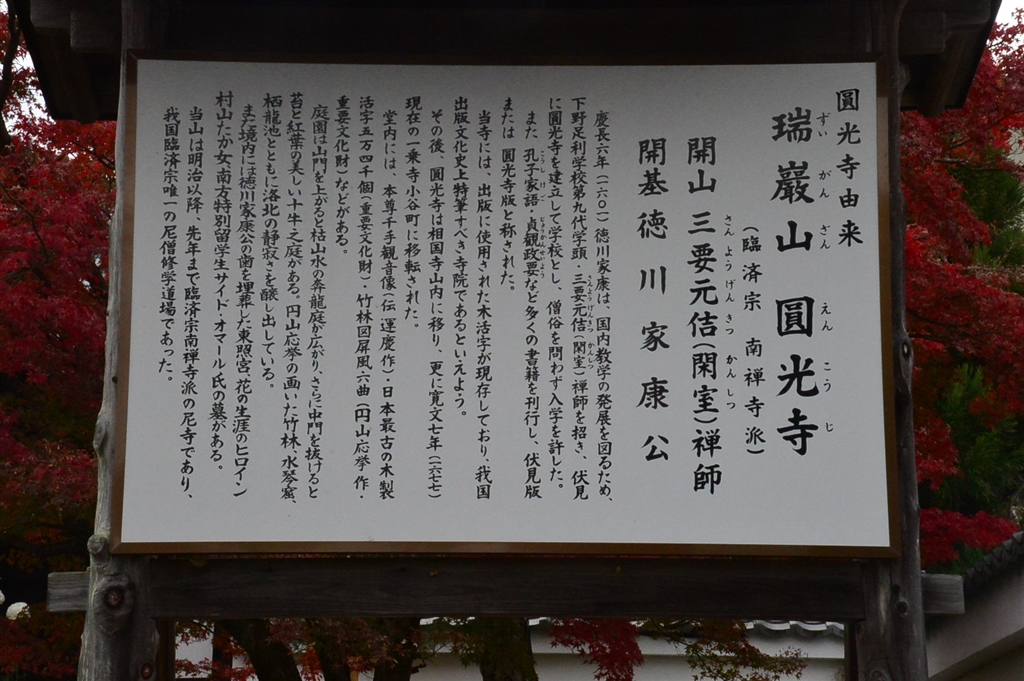 圓光寺由来
瑞巌山 圓光寺
ずい がん ざん えん こう じ
(臨済宗 南禅寺派)
開山 三要元佶(閑室)禅師
さんようげんきつ かんしつ
開基 徳川家康公
慶長六年(一六〇一)徳川家康は、国内教学の発展を図るため、
下野足利学校第九代学頭・三要元佶(閑室)禅師を招き、伏見
さんようげんきつ かんしつ
に圓光寺を建立して学校とし、僧俗を問わず入学を許した。
また、孔子家語・貞観政要など多くの書籍を刊行し、伏見版
こうしけご じょうかんせいよう
または 圓光寺版と称された。
当寺には、出版に使用された木活字が現存しており、我国
出版文化史上特筆すべき寺院であるといえよう。
その後、圓光寺は相国寺山内に移り、更に寛文七年(一六七七)
現在の一乗寺小谷町に移転された。
堂内には、本尊千手観音像(伝 運慶作)・日本最古の木製
活字五万四千個(重要文化財)・竹林図屏風六曲(円山応挙作・
重要文化財)などがある。
庭園は山門を上がると枯山水の奔龍庭が広がり、さらに中門を抜けると
苔と紅葉の美しい十牛之庭がある。円山応挙の画いた竹林、水琴窟、
栖龍池とともに洛北の静寂さを醸し出している。
また境内には徳川家康公の歯を埋葬した東照宮、花の生涯のヒロイン
村山たか女、南方特別留学生サイド・オマール氏の墓がある。
当山は明治以降、先年まで臨済宗南禅寺派の尼寺であり、
我国臨済宗唯一の尼僧修学道場であった。